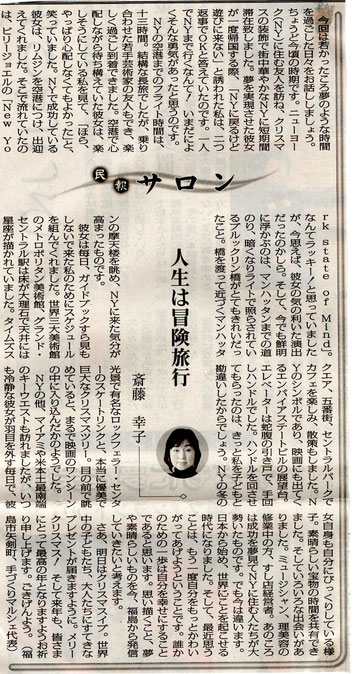 民報サロン
人生は冒険旅行
斎藤 幸子
今回は若かったころ夢のような時間
を過ごした日々をお話ししましょう。
ちょうど今頃の時期です。ニューヨー
ク(NY)に住む友人を訪ね、クリスマ
スの装飾で街中華やかなNYに短期間
滞在致しました。夢を実現させた彼女
が一度帰国する際、「NYに戻るけど
遊びに来ない」と誘われた私は、二つ
返事でOKと答えていたのです。一人
でNYまで行くなんて!いまだによ
くそんな勇気があったと思うのです。
NYの空港までのフライト時間は、
十三時間。結構な長旅でしたが、乗り
合わせた若手芸術家の友人もでき、楽
しく過ごし到着できました。空港で心
配しながら待ち構えていた彼女は、楽
しそうにしている私を見て、「ほら、
やっぱり心配しなくてもよかった」と、
笑っていました。NYで成功している
彼女は、リムジンを空港につけ、出迎
えてくれました。そこで流れていたの
は、ビリージョエルの「New Yo
rk state of Mind」。
なんてラッキーと思っていました
が、今思えば、彼女の気の利いた演出
だったのかしら。そして、今でも鮮明
に浮かぶのは、マンハッタンまでの道
のり、暗くなりライトで照らされてい
るブルックリン橋がとてもきれいだっ
たこと。橋を渡って近づくマンハッタ
ンの摩天楼を眺め、NYに来た気分が
高まったものです。
彼女は毎日、ガイドブックすら見も
しないで来た私のためにスケジュール
を組んでくれました。世界三大美術館
のメトロポリタン美術館、グランド・
セントラル駅は床が大理石で天井には
星座が描かれていました。タイムズス
クエア、五番街、セントラルパークで
カフェを楽しみ、散策もしました。N
Yのシンボルであり、映画にも出てく
るエンパイアステートビルの展望台。
エレベーターは蛇腹の引き戸で、手回
しハンドルでした。ハンドルを回させ
てもらったのは、きっと私を子どもと
勘違いしたからでしょう。NYの冬の
光景で有名なロックフェラー・センタ
ーのスケートリンクと、本当に優美で
巨大なクリスマスツリー。目の前で眺
めていると、まるで映画のワンシーン
の中に入り込んだかのようでした。
NYの他、マイアミや米本土最南端
のキーウエストも訪れましたが、いつ
も冷静な彼女が羽目を外す毎日で、彼
女自身も自分にびっくりしている様
子。素晴らしい宝物の時間を共有でき
ました。そしていろいろな出会いがあ
りました。ミュージシャン、理美容の
オーナーの方、すし店経営者。あのころ
は成功を夢見てNYに住む人たちが大
勢いたものです。でも今は違います。
日本から始め、世界にことを起こせる
時代になりました。そして、最近思う
ことは、もう一度自分をもっとかわい
がってあげようということです。誰か
のための一歩は自分を幸せにすること
であると思います。思い描くこと、夢
や素晴らしいものを今、福島から発信
していきたいと考えます。
さあ、明日はクリスマスイブ。世界
中の子どもたち、大人たちにすてきな
プレゼントが届きますように。メリー
クリスマス!そして来年も、皆さま
にとって最高の年となりますようお祈
り申し上げます。ごきげんよう。(福
島市矢剣町、手づくりマルシェ代表)